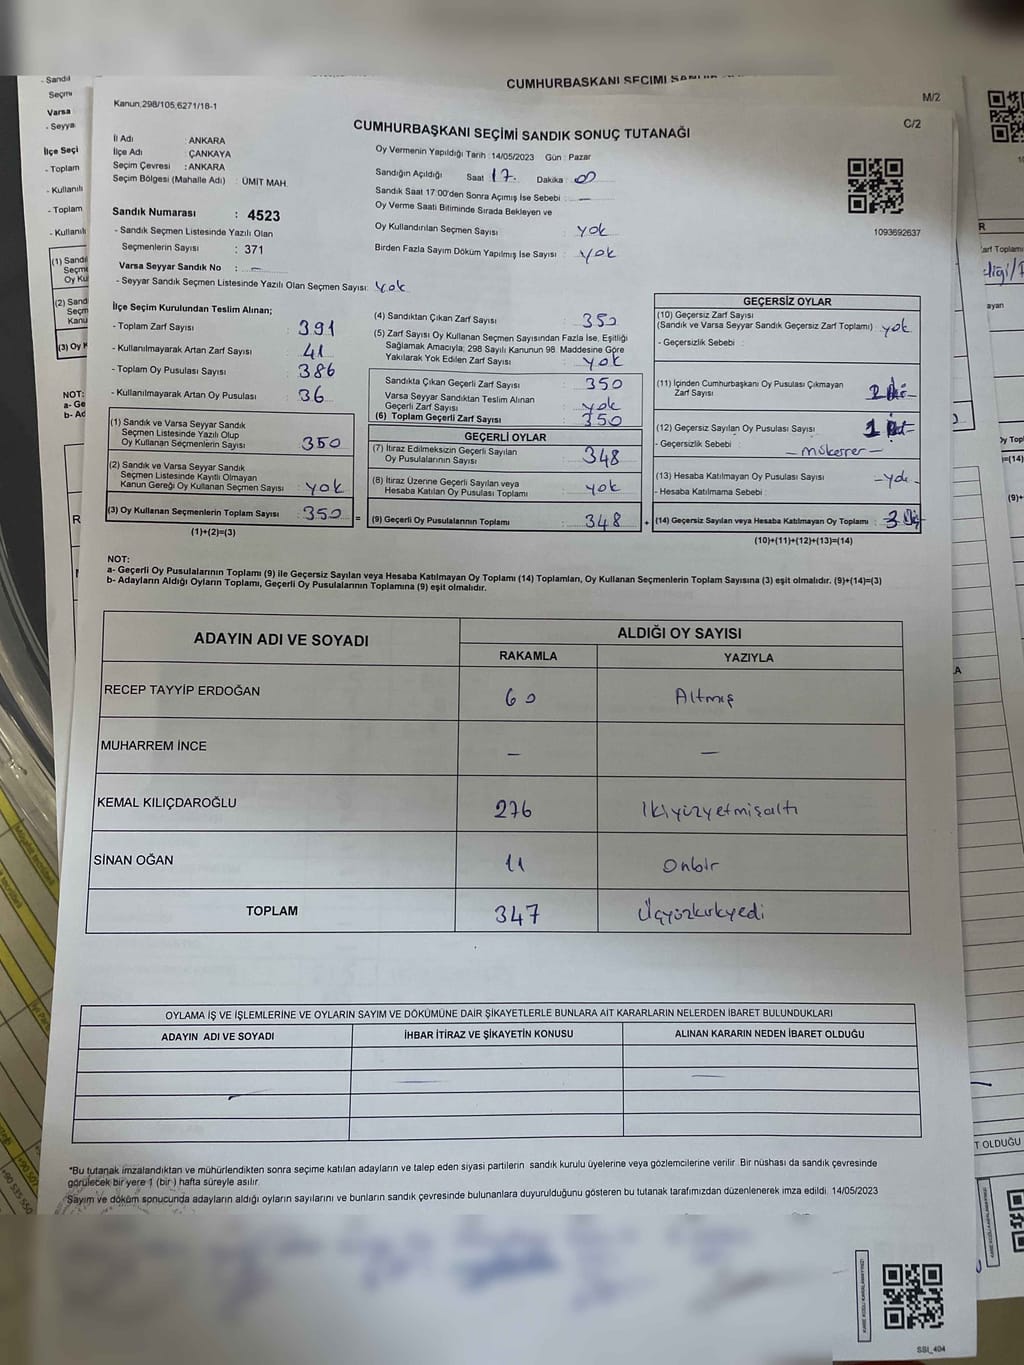 CUMHURBAŞKANI SEÇİMİ
M/2
- Sandıl
Seçmı
Varsa
- Seyya
İlçe Seçi
- Toplam
- Kullanılı
- Toplam
- Kullanılı
(1) Sandı
Seçme
Oy Ku
(2) Sand
Seçm
Kanu
(3) Oy K
NOT:
a- Ge
b- Ad
Kanun;298/105,6271/18-1
C/2
CUMHURBAŞKANI SEÇİMİ SANDIK SONUÇ TUTANAĞI
İl Adı : ANKARA
İlçe Adı : ÇANKAYA
Seçim Çevresi : ANKARA
Seçim Bölgesi (Mahalle Adı) : ÜMİT MAH.
Sandık Numarası : 4523
- Sandık Seçmen Listesinde Yazılı Olan
Seçmenlerin Sayısı : 371
Varsa Seyyar Sandık No : —
- Seyyar Sandık Seçmen Listesinde Yazılı Olan Seçmen Sayısı: yok
Oy Vermenin Yapıldığı Tarih :14/05/2023 Gün : Pazar
Sandığın Açıldığı Saat 17. Dakika : 00
Sandık Saat 17:00'den Sonra Açımış İse Sebebi : —
Oy Verme Saati Bitiminde Sırada Bekleyen ve
Oy Kullandırılan Seçmen Sayısı : yok
Birden Fazla Sayım Döküm Yapılmış İse Sayısı : yok
1093692637
İlçe Seçim Kurulundan Teslim Alınan;
- Toplam Zarf Sayısı : 391
- Kullanılmayarak Artan Zarf Sayısı : 41
- Toplam Oy Pusulası Sayısı : 386
- Kullanılmayarak Artan Oy Pusulası : 36
(1) Sandık ve Varsa Seyyar Sandık
Seçmen Listesinde Yazılı Olup
Oy Kullanan Seçmenlerin Sayısı : 350
(2) Sandık ve Varsa Seyyar Sandık
Seçmen Listesinde Kayıtlı Olmayan
Kanun Gereği Oy Kullanan Seçmen Sayısı : yok
(3) Oy Kullanan Seçmenlerin Toplam Sayısı : 350 =
(1)+(2)=(3)
(4) Sandıktan Çıkan Zarf Sayısı : 350
(5) Zarf Sayısı Oy Kullanan Seçmen Sayısından Fazla İse, Eşitliği
Sağlamak Amacıyla; 298 Sayılı Kanunun 98. Maddesine Göre
Yakılarak Yok Edilen Zarf Sayısı : yok
Sandıkta Çıkan Geçerli Zarf Sayısı : 350
Varsa Seyyar Sandıktan Teslim Alınan
Geçerli Zarf Sayısı : yok
(6) Toplam Geçerli Zarf Sayısı : 350
GEÇERLİ OYLAR
(7) İtiraz Edilmeksizin Geçerli Sayılan
Oy Pusulalarının Sayısı : 348
(8) İtiraz Üzerine Geçerli Sayılan veya
Hesaba Katılan Oy Pusulası Toplamı : yok
(9) Geçerli Oy Pusulalarının Toplamı : 348 +
GEÇERSİZ OYLAR
(10) Geçersiz Zarf Sayısı
(Sandık ve Varsa Seyyar Sandık Geçersiz Zarf Toplamı) : yok
- Geçersizlik Sebebi :
(11) İçinden Cumhurbaşkanı Oy Pusulası Çıkmayan
Zarf Sayısı : 2
(12) Geçersiz Sayılan Oy Pusulası Sayısı : 1
- Geçersizlik Sebebi : — mükerrer —
(13) Hesaba Katılmayan Oy Pusulası Sayısı : -yok-
- Hesaba Katılmama Sebebi :
(14) Geçersiz Sayılan veya Hesaba Katılmayan Oy Toplamı : 3 Üç
(10)+(11)+(12)+(13)=(14)
NOT:
a- Geçerli Oy Pusulalarının Toplamı (9) ile Geçersiz Sayılan veya Hesaba Katılmayan Oy Toplamı (14) Toplamları, Oy Kullanan Seçmenlerin Toplam Sayısına (3) eşit olmalıdır. (9)+(14)=(3)
b- Adayların Aldığı Oyların Toplamı, Geçerli Oy Pusulalarının Toplamına (9) eşit olmalıdır.
ADAYIN ADI VE SOYADI ALDIĞI OY SAYISI
RAKAMLA YAZIYLA
RECEP TAYYİP ERDOĞAN 60 Altmış
MUHARREM İNCE — —
KEMAL KILIÇDAROĞLU 276 İkiyüzyetmişaltı
SİNAN OĞAN 11 Onbir
TOPLAM 347 Üçyüzkırkyedi
OYLAMA İŞ VE İŞLEMLERİNE VE OYLARIN SAYIM VE DÖKÜMÜNE DAİR ŞİKAYETLERLE BUNLARA AİT KARARLARIN NELERDEN İBARET BULUNDUKLARI
ADAYIN ADI VE SOYADI İHBAR İTİRAZ VE ŞİKAYETİN KONUSU ALINAN KARARIN NEDEN İBARET OLDUĞU
*Bu tutanak imzalandıktan ve mühürlendikten sonra seçime katılan adayların ve talep eden siyasi partilerin sandık kurulu üyelerine veya gözlemcilerine verilir. Bir nüshası da sandık çevresinde
görülecek bir yere 1 (bir) hafta süreyle asılır.
Sayım ve döküm sonucunda adayların aldığı oyların sayılarını ve bunların sandık çevresinde bulunanlara duyurulduğunu gösteren bu tutanak tarafımızdan düzenlenerek imza edildi. 14/05/2023
SSI_404
R
arf Toplamı
ayan
Oy Top
=(14)
(9)+
T OLDUĞU